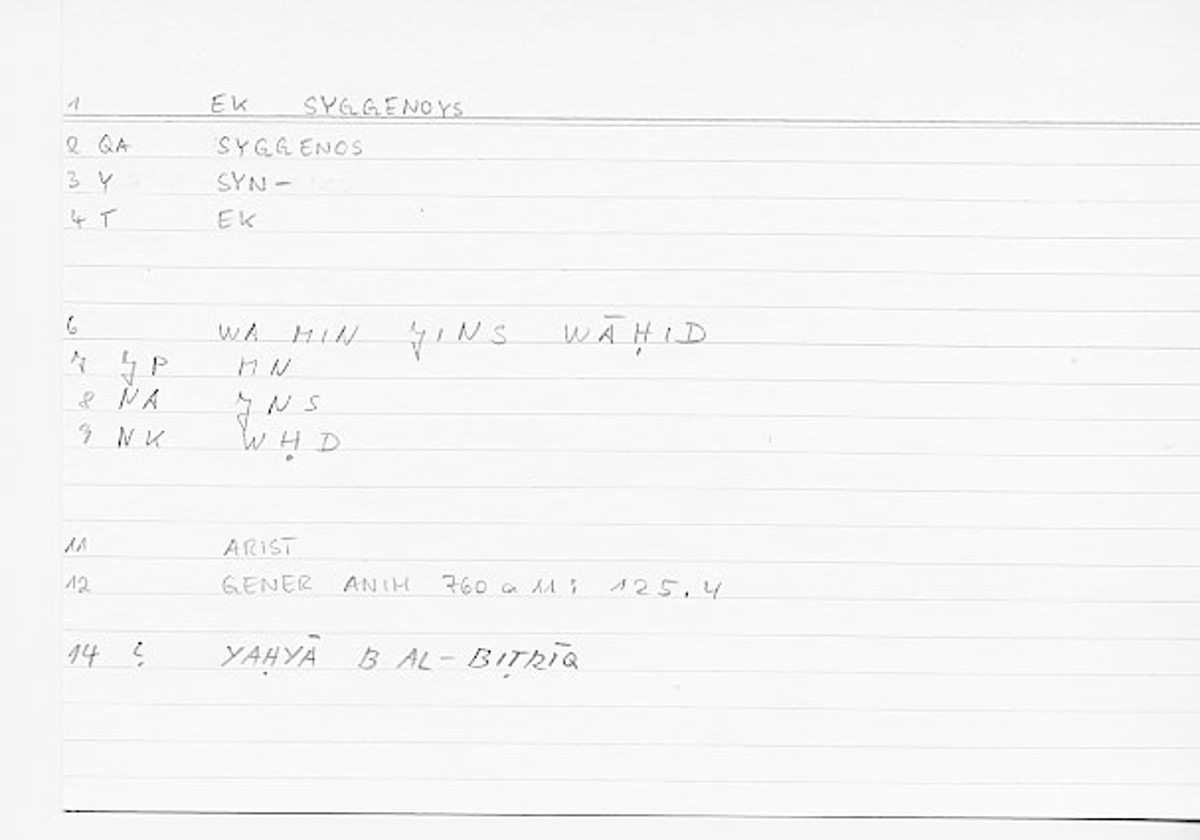 1 EK SYGGENOYS
2 QA SYGGENOS
3 Y SYN-
4 T EK
6 WA MIN ǦINS WĀḤID
7 ǦP MN
8 NA ǦNS
9 NK WḤD
11 ARIST
12 GENER ANIM 760 a 11 : 125.4
14 YAḤYĀ B AL-BIṬRĪQ